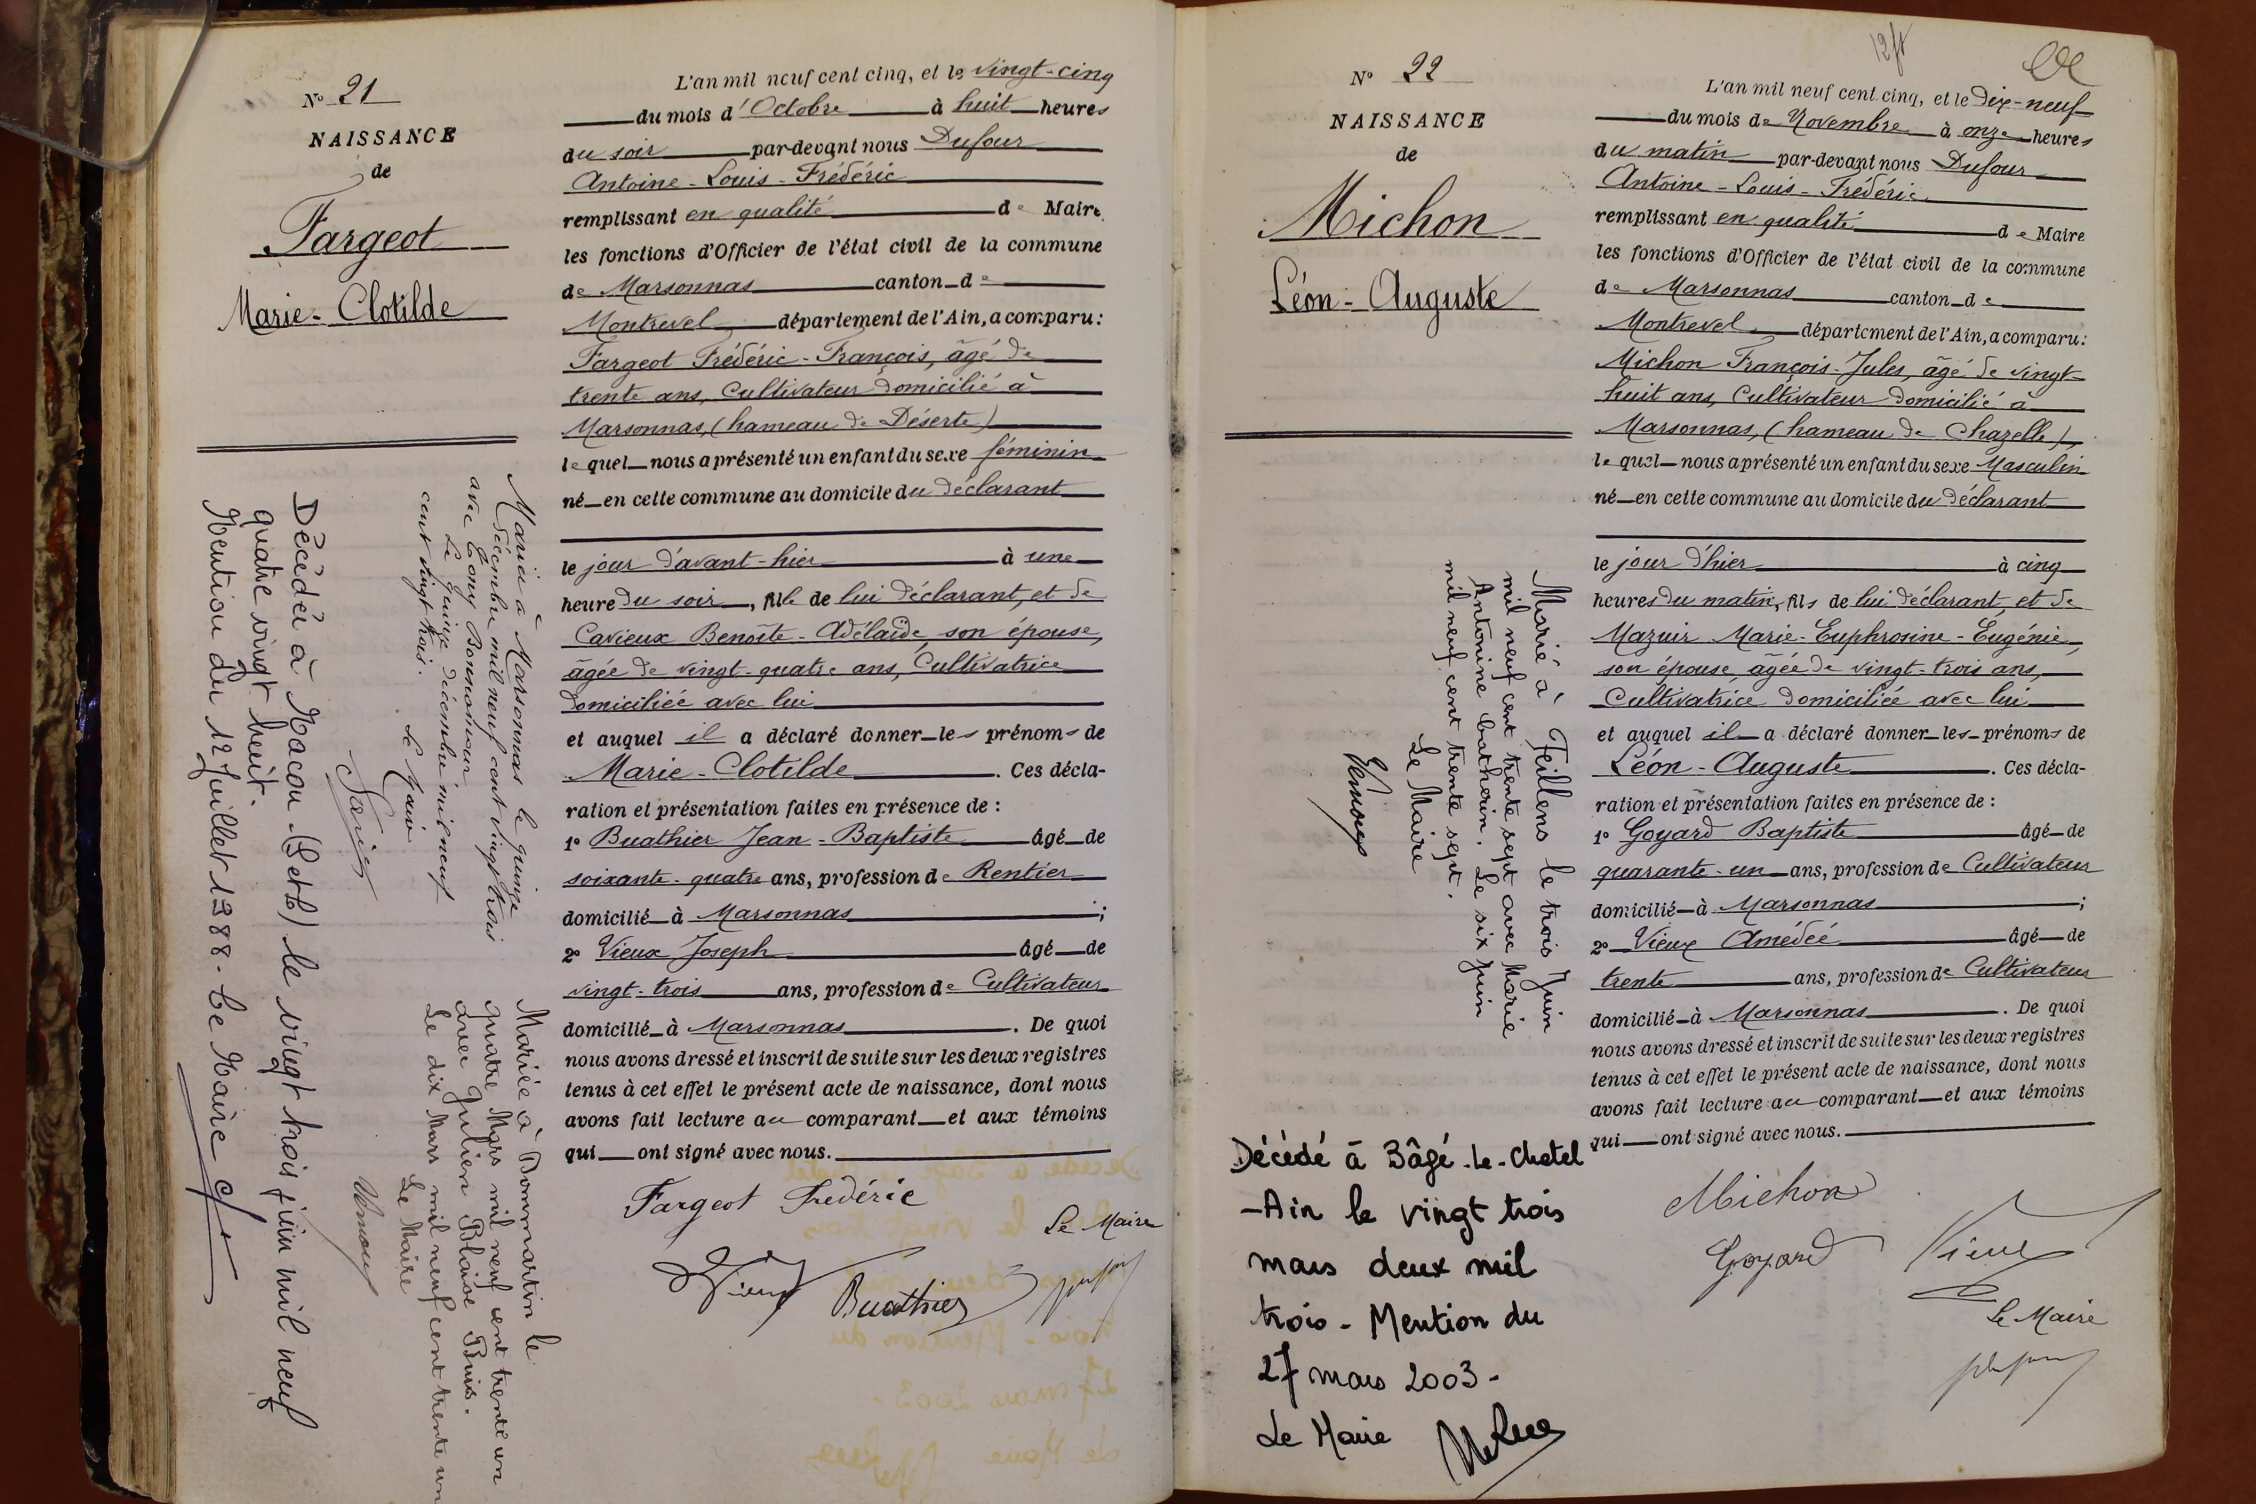 N° 21
NAISSANCE
de
Fargeot
Marie-Clotilde
L'an mil neuf cent cinq, et le vingt-cinq
du mois d'Octobre à huit heures
du soir par-devant nous Dufour
Antoine-Louis-Frédéric
remplissant en qualité de Maire
les fonctions d'Officier de l'état civil de la commune
de Marsonnas canton de
Montrevel département de l'Ain, a comparu :
Fargeot Frédéric-François, âgé de
trente ans, Cultivateur domicilié à
Marsonnas, (hameau de Déserte)
lequel nous a présenté un enfant du sexe féminin
né en cette commune au domicile du déclarant
le jour d'avant-hier à une
heure du soir, fille de lui déclarant, et de
Cavieux Benoîte-Adélaïde, son épouse,
âgée de vingt-quatre ans, Cultivatrice
domiciliée avec lui
et auquel il a déclaré donner les prénoms de
Marie-Clotilde. Ces décla-
ration et présentation faites en présence de :
1° Buathier Jean-Baptiste âgé de
soixante-quatre ans, profession de Rentier
domicilié à Marsonnas ;
2° Vieux Joseph âgé de
vingt-trois ans, profession de Cultivateur
domicilié à Marsonnas. De quoi
nous avons dressé et inscrit de suite sur les deux registres
tenus à cet effet le présent acte de naissance, dont nous
avons fait lecture au comparant et aux témoins
qui ont signé avec nous.
Fargeot Frédéric
Le Maire
Vieux Buathier
Mariée à Marsonnas le quinze
décembre mil neuf cent vingt trois
avec Tony Bonnamour
Le quinze décembre mil neuf
cent vingt trois. Le Maire
Mariée à Dommartin le
quatre Mars mil neuf cent trente un
avec Julien Blaise Buis.
Le dix Mars mil neuf cent trente un
Le Maire
Décédée à Macon (S et L) le vingt trois juin mil neuf
quatre vingt huit.
Mention du 12 juillet 1988. Le Maire
N° 22
NAISSANCE
de
Michon
Léon-Auguste
L'an mil neuf cent cinq, et le Dix-neuf
du mois de Novembre à onze heures
du matin par-devant nous Dufour
Antoine-Louis-Frédéric
remplissant en qualité de Maire
les fonctions d'Officier de l'état civil de la commune
de Marsonnas canton de
Montrevel département de l'Ain, a comparu :
Michon François-Jules, âgé de vingt-
huit ans, Cultivateur domicilié à
Marsonnas, (hameau de Chazelle)
lequel nous a présenté un enfant du sexe Masculin
né en cette commune au domicile du déclarant
le jour d'hier à cinq
heures du matin, fils de lui déclarant, et de
Mazuir Marie-Euphrosine-Eugénie,
son épouse, âgée de vingt-trois ans,
Cultivatrice domiciliée avec lui
et auquel il a déclaré donner les prénoms de
Léon-Auguste. Ces décla-
ration et présentation faites en présence de :
1° Goyard Baptiste âgé de
quarante-un ans, profession de Cultivateur
domicilié à Marsonnas ;
2° Vieux Amédée âgé de
trente ans, profession de Cultivateur
domicilié à Marsonnas. De quoi
nous avons dressé et inscrit de suite sur les deux registres
tenus à cet effet le présent acte de naissance, dont nous
avons fait lecture au comparant et aux témoins
qui ont signé avec nous.
Michon
Goyard Vieux
Le Maire
Marié à Feillens le trois Juin
mil neuf cent trente sept avec Marie
Antonine Catherin. Le six Juin
mil neuf cent trente sept.
Le Maire
Décédé à Bâgé-Le-Chatel
-Ain le vingt trois
mars deux mil
trois - Mention du
27 mars 2003 -
Le Maire